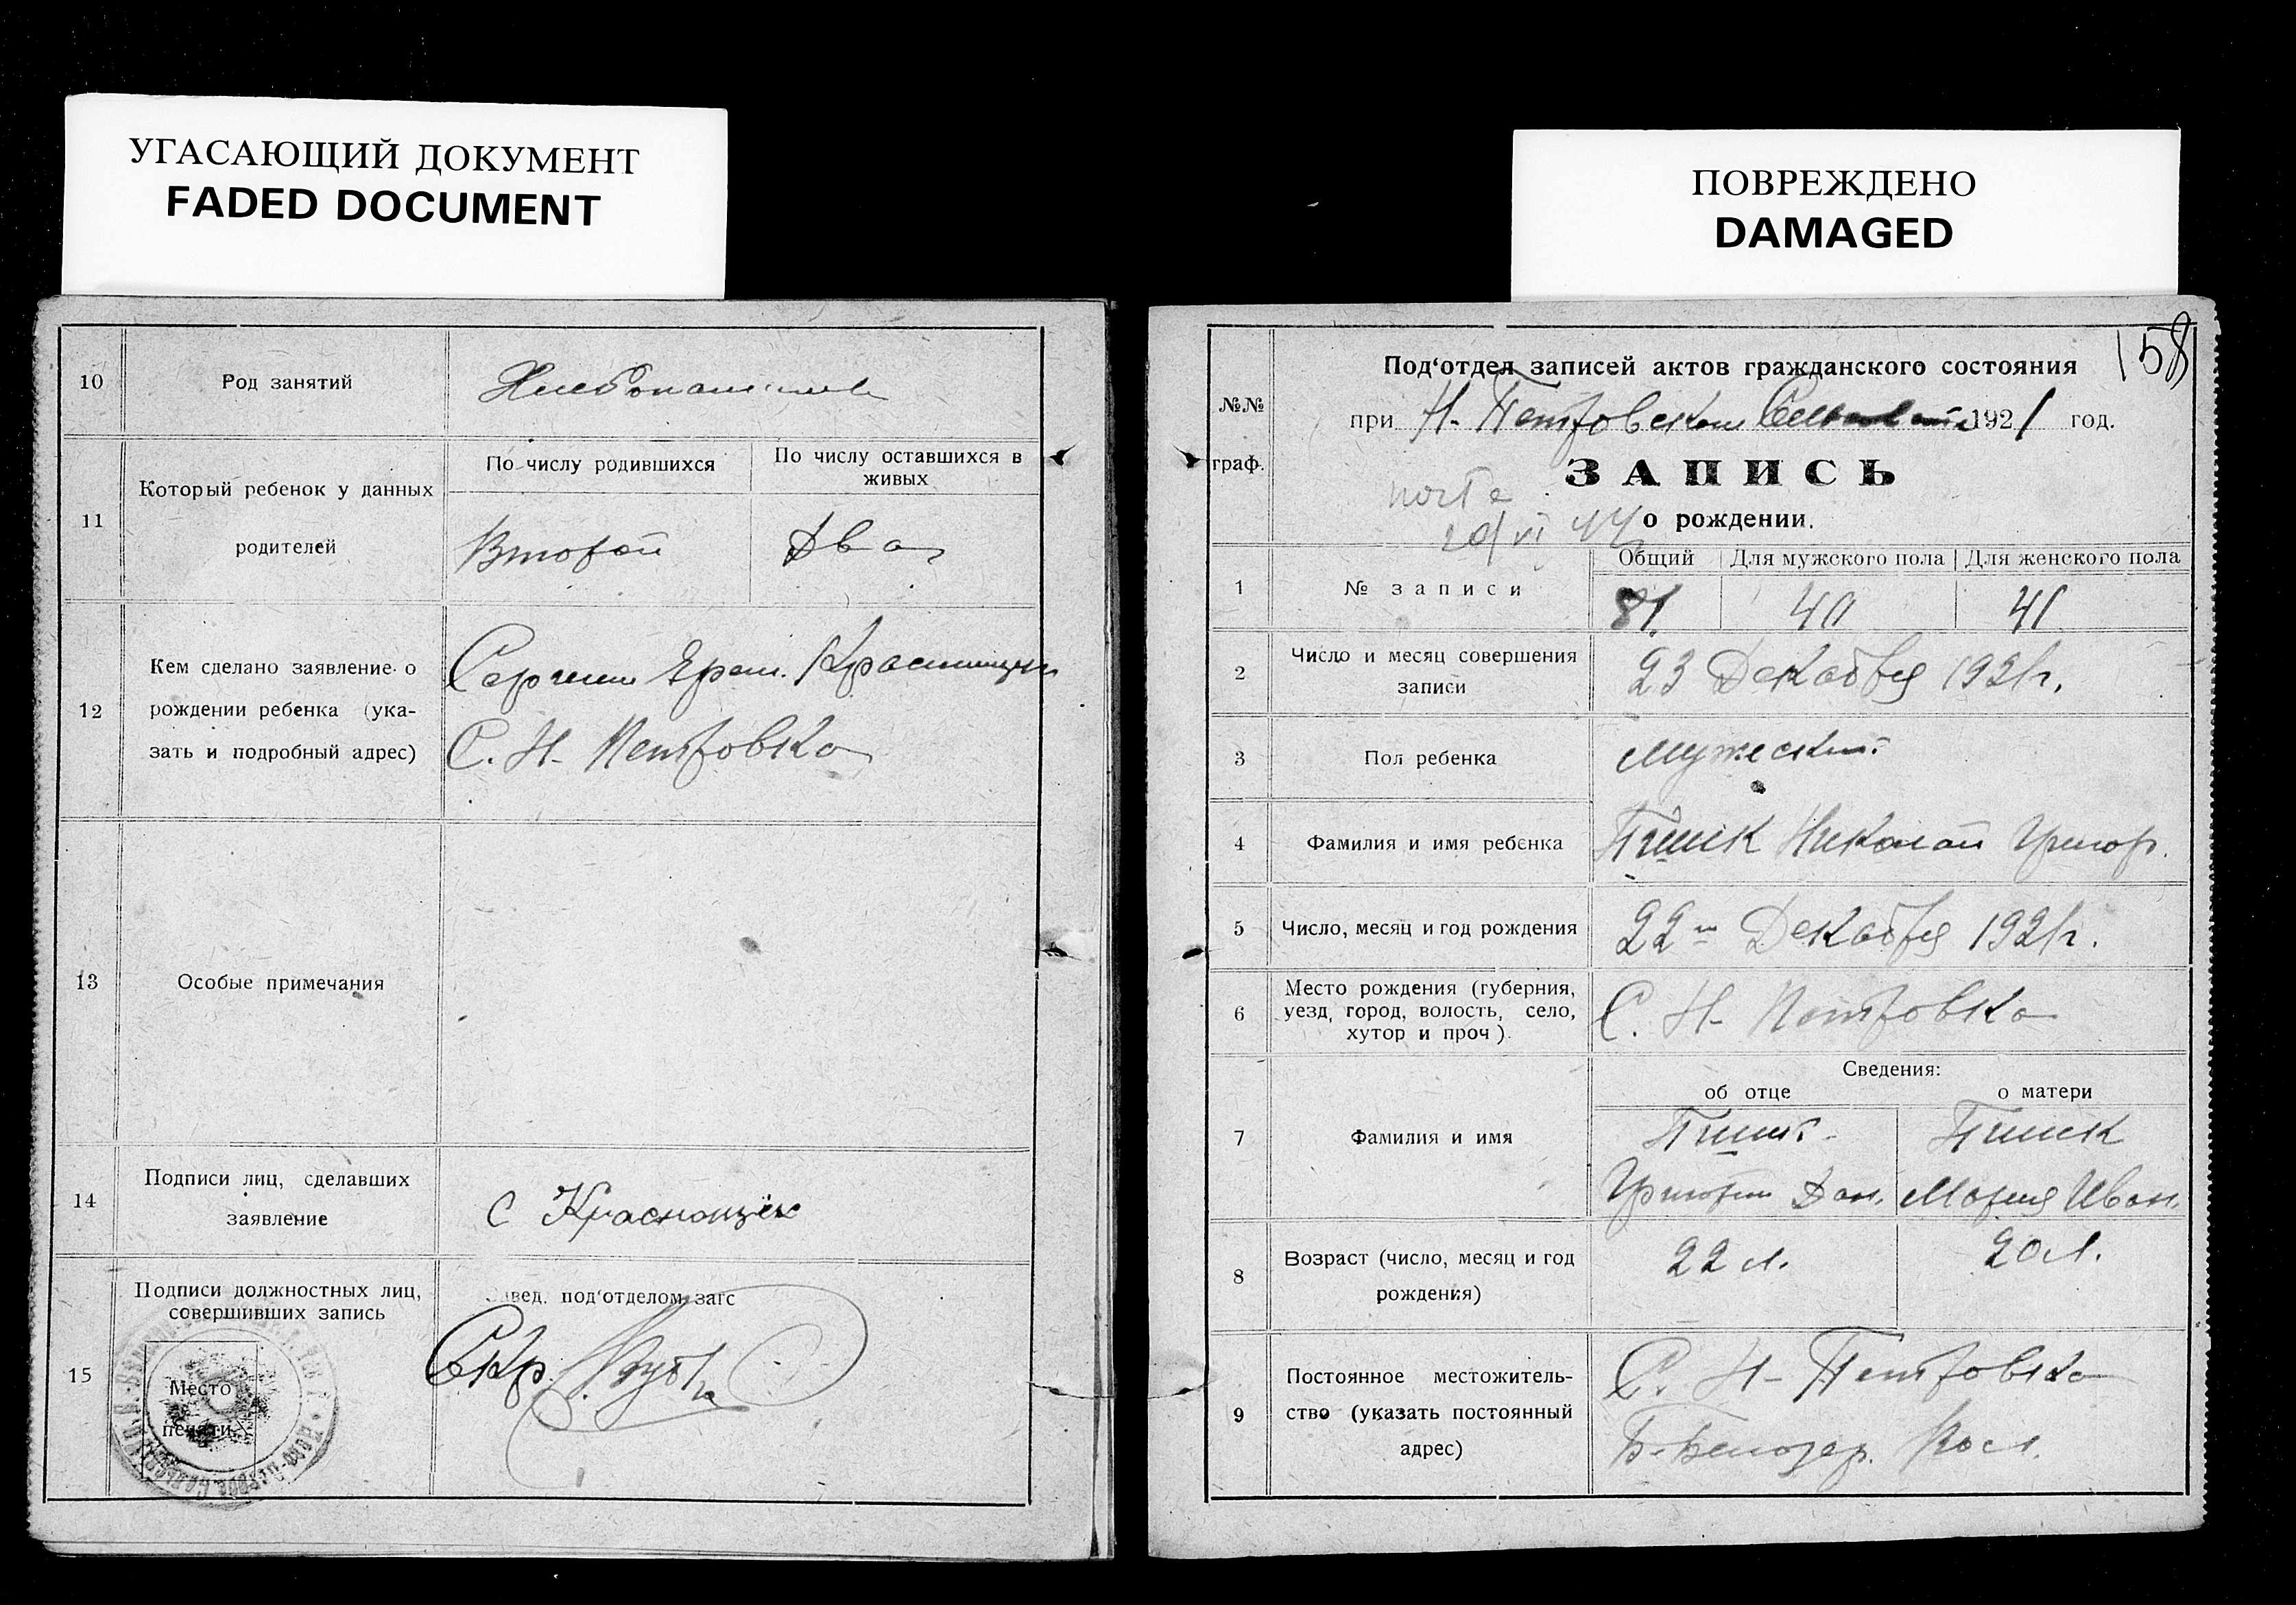 УГАСАЮЩИЙ ДОКУМЕНТ
FADED DOCUMENT
10 Род занятий
11 Который ребенок у данных родителей
По числу родившихся
По числу оставшихся в живых
Второй
Два
12 Кем сделано заявление о
рождении ребенка (ука-
зать и подробный адрес)
С. Н-Петровка
13 Особые примечания
14 Подписи лиц, сделавших
заявление
С Краснощек
15 Подписи должностных лиц,
совершивших запись
Место
печати
Завед. под‘отделом загс
Скр.
ПОВРЕЖДЕНО
DAMAGED
158
№№ граф.
Под‘отдел записей актов гражданского состояния
при Н-Петровском 1921 год.
ЗАПИСЬ
о рождении.
1 № записи
Общий Для мужского пола Для женского пола
81. 40 41
2 Число и месяц совершения
записи
23 Декабря 1921г.
3 Пол ребенка
Мужеский
4 Фамилия и имя ребенка
Пшик Николай Григор.
5 Число, месяц и год рождения
22го Декабря 1921г.
6 Место рождения (губерния,
уезд, город, волость, село,
хутор и проч).
С. Н-Петровка
Сведения:
об отце о матери
7 Фамилия и имя
Пшик Пшик
Григорий Дан. Мария Иван.
8 Возраст (число, месяц и год
рождения)
22 л. 20 л.
9 Постоянное местожитель-
ство (указать постоянный
адрес)
С. Н-Петровка
Б-Белозер.